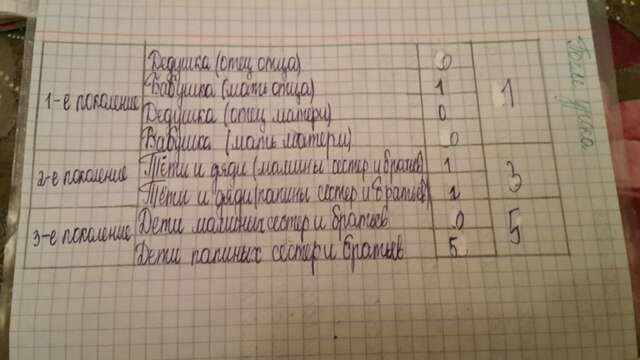 1-е поколение
Дедушка (отец отца) 0
Бабушка (мать отца) 1
Дедушка (отец матери) 0
Бабушка (мать матери) 0
1
2-е поколение
Тёти и дяди (мамины сестер и братьев) 1
Тёти и дяди (папины сестер и братьев) 2
3
3-е поколение
Дети маминых сестер и братьев 0
Дети папиных сестер и братьев 5
5